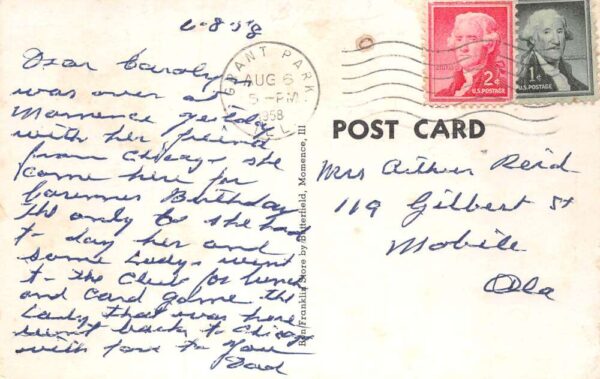 6-8-58
Dear Carolyn
was over at
Momence yestdy
with her friend
from Chicago she
came here for
Birthday
the only to she had
to day her and
some Ladys went
to the Club for lunch
and card game the
Lady that was here
went back to Chicago
with love to you
Dad
GRANT PARK
AUG 6
5-PM
1958
ILL.
2¢
U.S. POSTAGE
1¢
U.S. POSTAGE
POST CARD
Mrs Arthur Reid
119 Gilbert St
Mobile
Ala
Ben Franklin Store by Butterfield, Momence, Ill